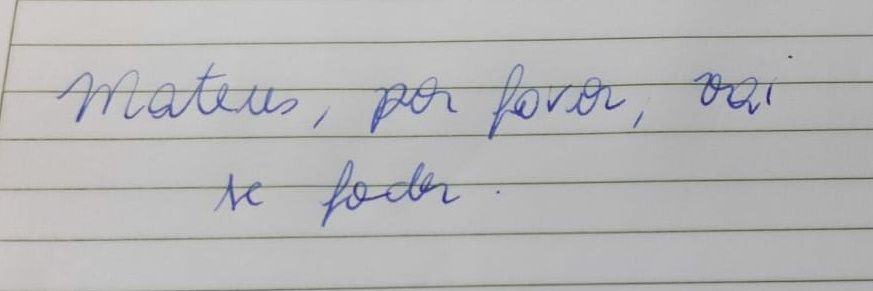 Mateus, por favor, vai
se foder.